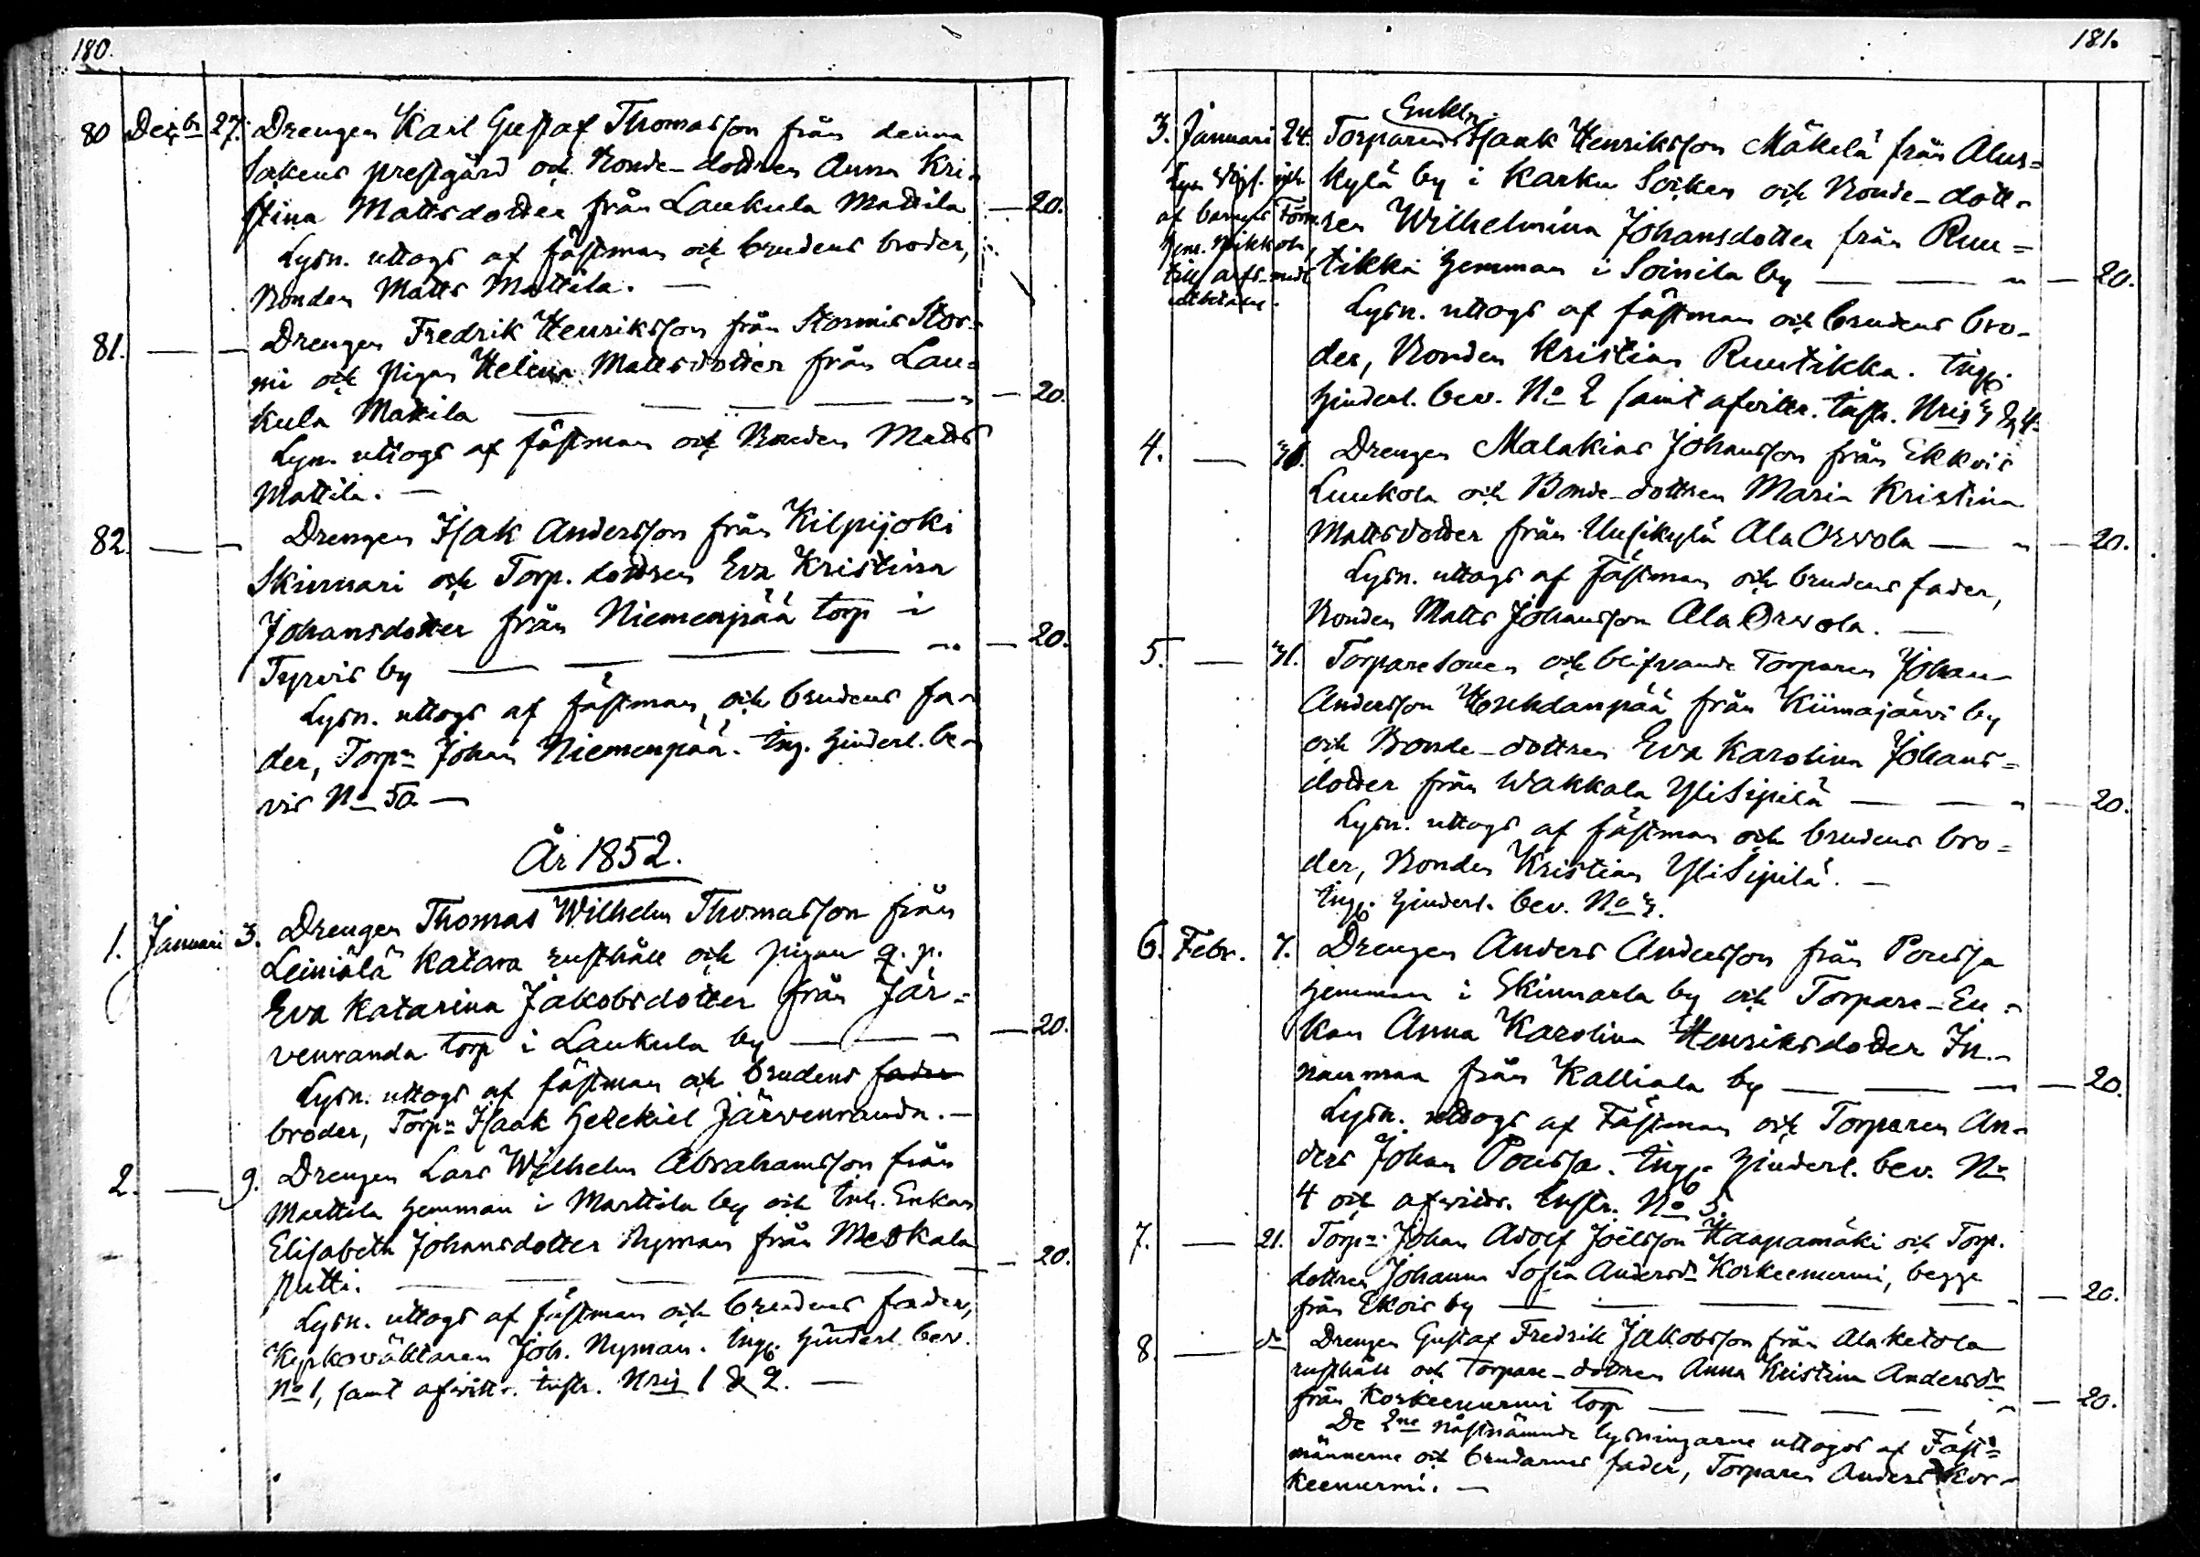 180.
80 Dec:br 27. Drengen Karl Gustaf Thomasson från denna
Sokens prestgård och Bonde-dottren Anna Kri-
stina Mattsdotter från Laukula Mattila — 20.
Lysn. uttogs af fästman och brudens broder,
Bonden Matts Mattila. —
81. — — Drengen Fredrik Henriksson från Stormis Stor-
mi och pigan Helena Mattsdotter från Lau-
kula Mattila — — — — — 20.
Lysn. uttogs af fästman och Bonden Matts
Mattila. —
82. — — Drengen Isak Andersson från Kilpijoki
Skinnari och Torp. dottren Eva Kristina
Johansdotter från Niemenpää torp i
Tyrvis by — — — — — 20.
Lysn. uttogs af fästman och brudens fa-
der, Torpn Johan Niemenpää. Ing. hinderl. be-
vis No 50. —
År 1852.
1. Januari 3. Drengen Thomas Wilhelm Thomasson från
Leiniälä Katara rusthåll och pigan q. p.
Eva Katarina Jakobsdotter från Jär-
venranda torp i Laukula by — — — 20.
Lysn. uttogs af fästman och brudens fader
broder, Torpn Isaak Hesekiel Järvenranda. —
2. — 9. Drengen Lars Wilhelm Abrahamsson från
Marttila hemman i Marttila by och Inh. Enkan
Elisabeth Johansdotter Nyman från Meskala
Putti. — — — — — 20.
Lysn. uttogs af fästman och brudens fader,
Kyrkoväktaren Joh. Nyman. Ingg. hinderl. bev.
No 1, samt afvittr. instr. Nris 1 & 2. —
181.
Enkln.
3. Januari 24. Torparen Isaak Henriksson Mäkelä från Alus-
kylä by i Karku Socken och Bonde-dott-
ren Wilhelmina Johansdotter från Ruu-
tikka hemman i Soinila by — — — 20.
af barnens Förm.
till arfs-
Lysn. uttogs af fästman och brudens bro-
der, Bonden Kristian Ruutikka. Ingg.
hinderl. bev. No 2 samt afvittr. instr. Nris 3 & 4.
4. — 31. Drengen Malakias Johansson från Ekkois
Luukola och Bonde-dottren Maria Kristina
Mattsdotter från Uusikylä Ala Orvola — — 20.
Lysn. uttogs af fästman och brudens fader,
Bonden Matts Johansson Ala Orvola. —
5. — 31. Torparesonen och blifvande Torparen Johan
Andersson Houhdanpää från Kiimajärvi by
och Bonde-dottren Eva Karolina Johans-
dotter från Wakkala YliSipilä — — — 20.
Lysn. uttogs af fästman och brudens bro-
der, Bonden Kristian YliSipilä. —
Ingg. hinderl. bev. No 3.
6. Febr. 7. Drengen Anders Andersson från Poussa
hemman i Skinnarla by och Torpare-En-
kan Anna Karolina Henriksdotter In-
nanmaa från Kalliala by — — — 20.
Lysn. uttogs af fästman och Torparen An-
ders Johan Poussa. Ingg. hinderl. bev. No
4 och afvittr. instr. No 5.
7. — 21. Torpn Johan Adolf Joelsson Haapamäki och Torp.
dottren Johanna Sofia Andersdr Korkeenurmi, begge
från Ekois by — — — — — 20.
8. — do Drengen Gustaf Fredrik Jakobsson från Alaketola
rusthåll och Torpare-dottren Anna Kristina Andersdr
från Korkeenurmi torp — — — — — 20.
De 2ne nästnämnde lysningarne uttogos af Fäst-
männerne och brudarnes fader, Torparen Anders Kor-
keenurmi. —